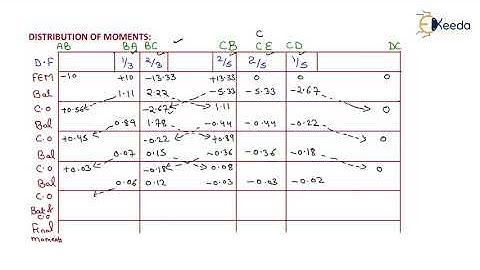 Ekeeda
DISTRIBUTION OF MOMENTS:
C
AB BA BC CB CE CD DC
D.F 1/3 2/3 2/5 2/5 1/5
FEM -10 +10 -13.33 +13.33 0 0 0
Bal 1.11 2.22 -5.33 -5.33 -2.67
C.O +0.56 -2.67 1.11 0
Bal 0.89 1.78 -0.44 -0.44 -0.22
C.O +0.45 -0.22 +0.89 0
Bal 0.07 0.15 -0.36 -0.36 -0.18
C.O +0.03 -0.18 0.08 0
Bal 0.06 0.12 -0.03 -0.03 -0.02
C.O
Bal &
C.O
Final
moments